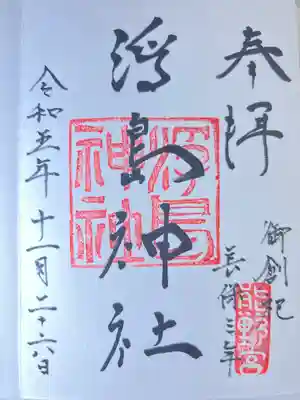 奉拝
御創祀
長保三年
熊野宮
浮島神社
浮島
神社
令和五年十一月二十六日